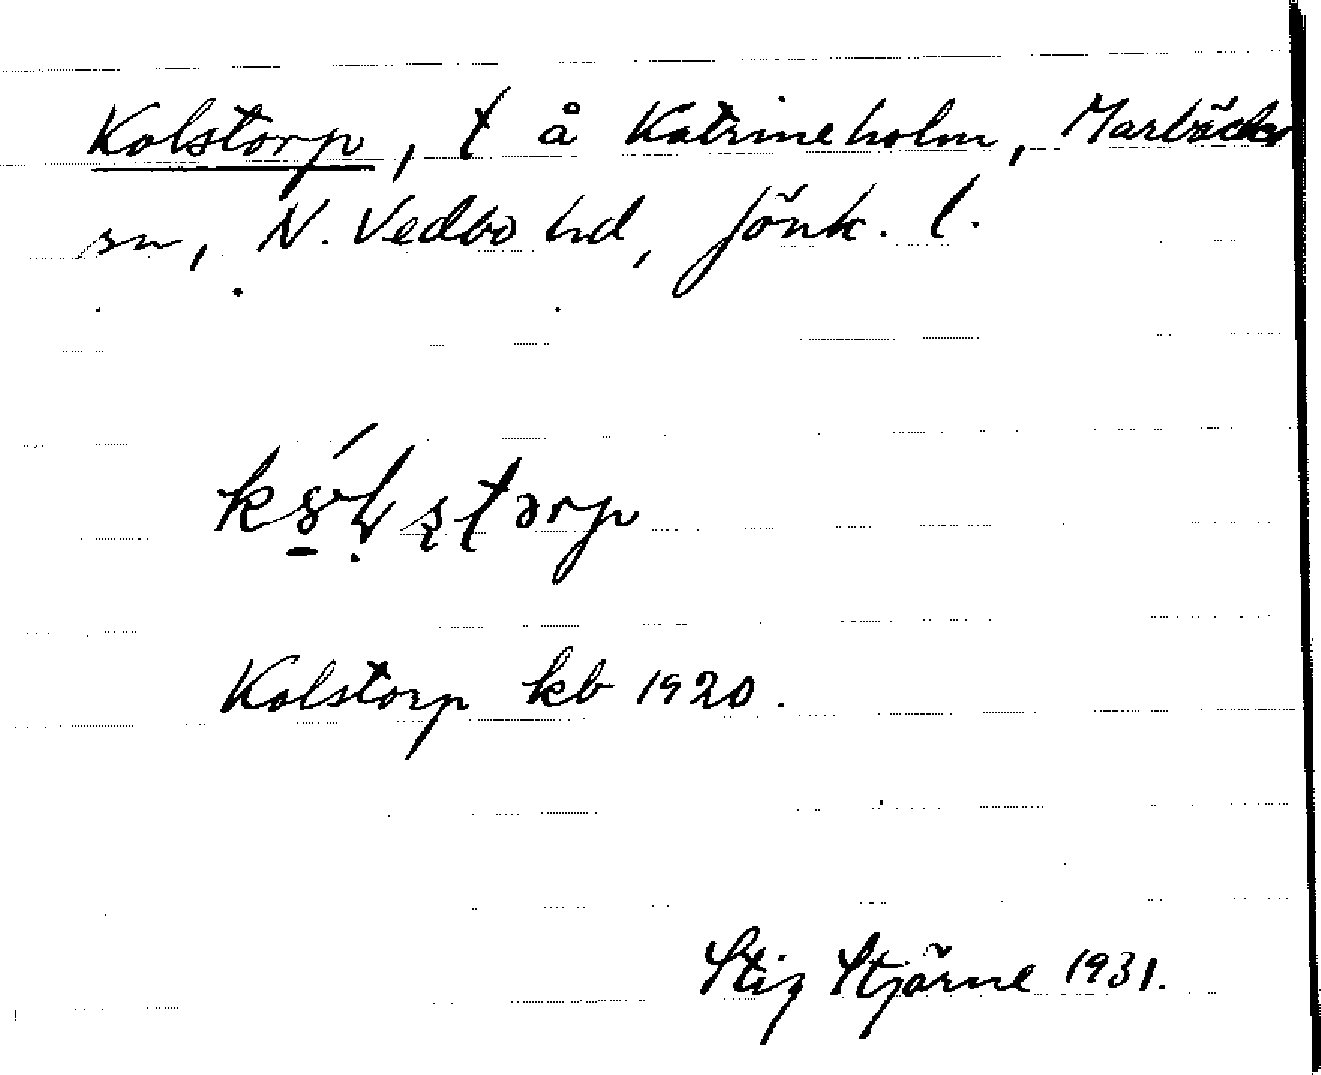 Kolstorp, t å Katrineholm, Marbäcks
sn, N. Vedbo hd, Jönk. l.
Kolstorp kb 1920.
Stig Stjärne 1931.